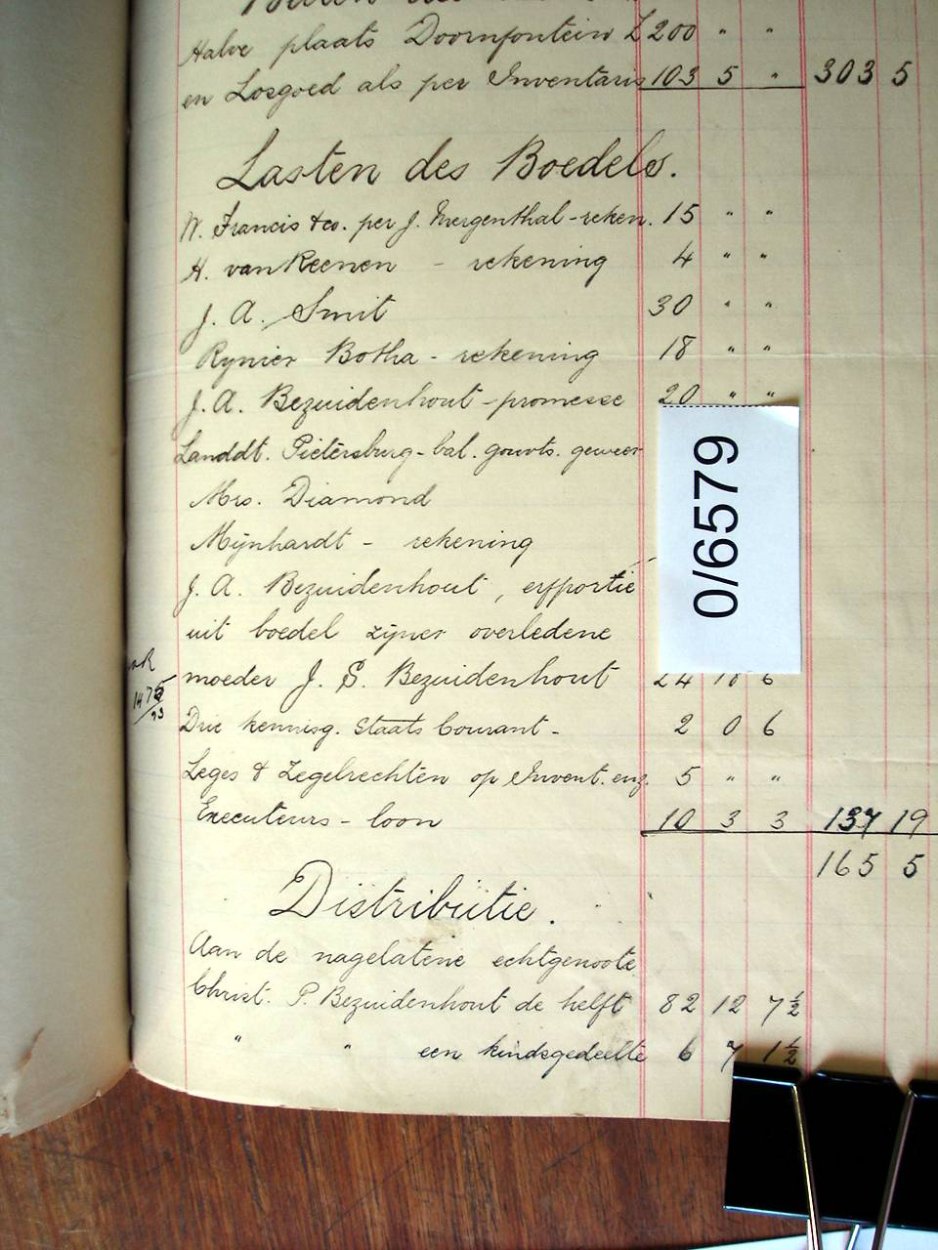 Halve plaats Doornfontein £200 " "
en Losgoed als per Inventaris 103 5 " 303 5
Lasten des Boedels.
W. Francis & co. per J. Mergenthal - reken. 15 " "
H. van Reenen - rekening 4 " "
J. A. Smit 30 " "
Rynier Botha - rekening 18 " "
J. A. Bezuidenhout - promesse 20 " "
Landdt. Pietersburg - bal. gouvts. geweer
Mrs. Diamond
Mijnhardt - rekening
0/6579
J. A. Bezuidenhout, erfportie
uit boedel zijner overledene
moeder J. S. Bezuidenhout 24 18 6
Drie kennisg. Staats Courant - 2 0 6
Leges & Zegelrechten op Invent. enz. 5 " "
Executeurs - loon 10 3 3 137 19
165 5
Distributie.
Aan de nagelatene echtgenoote
Christ. P. Bezuidenhout de helft 82 12 7½
" " een kindsgedeelte 6 7 1½